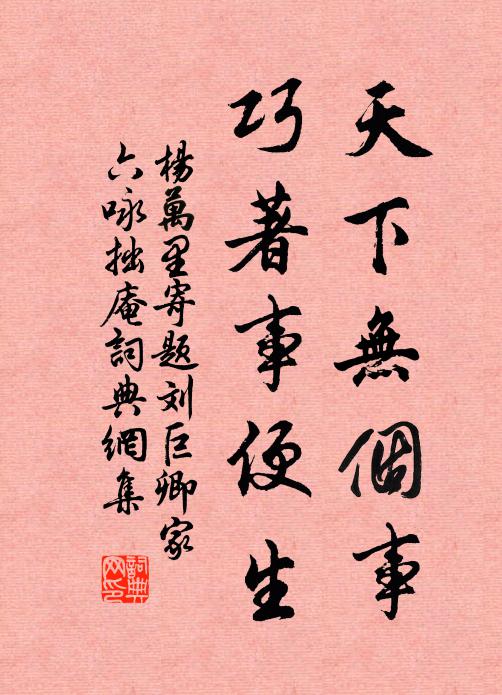 天下無個事
巧著事便生
楊萬里寄題刘巨卿家
六咏拙庵詞典網集
詞典
网印